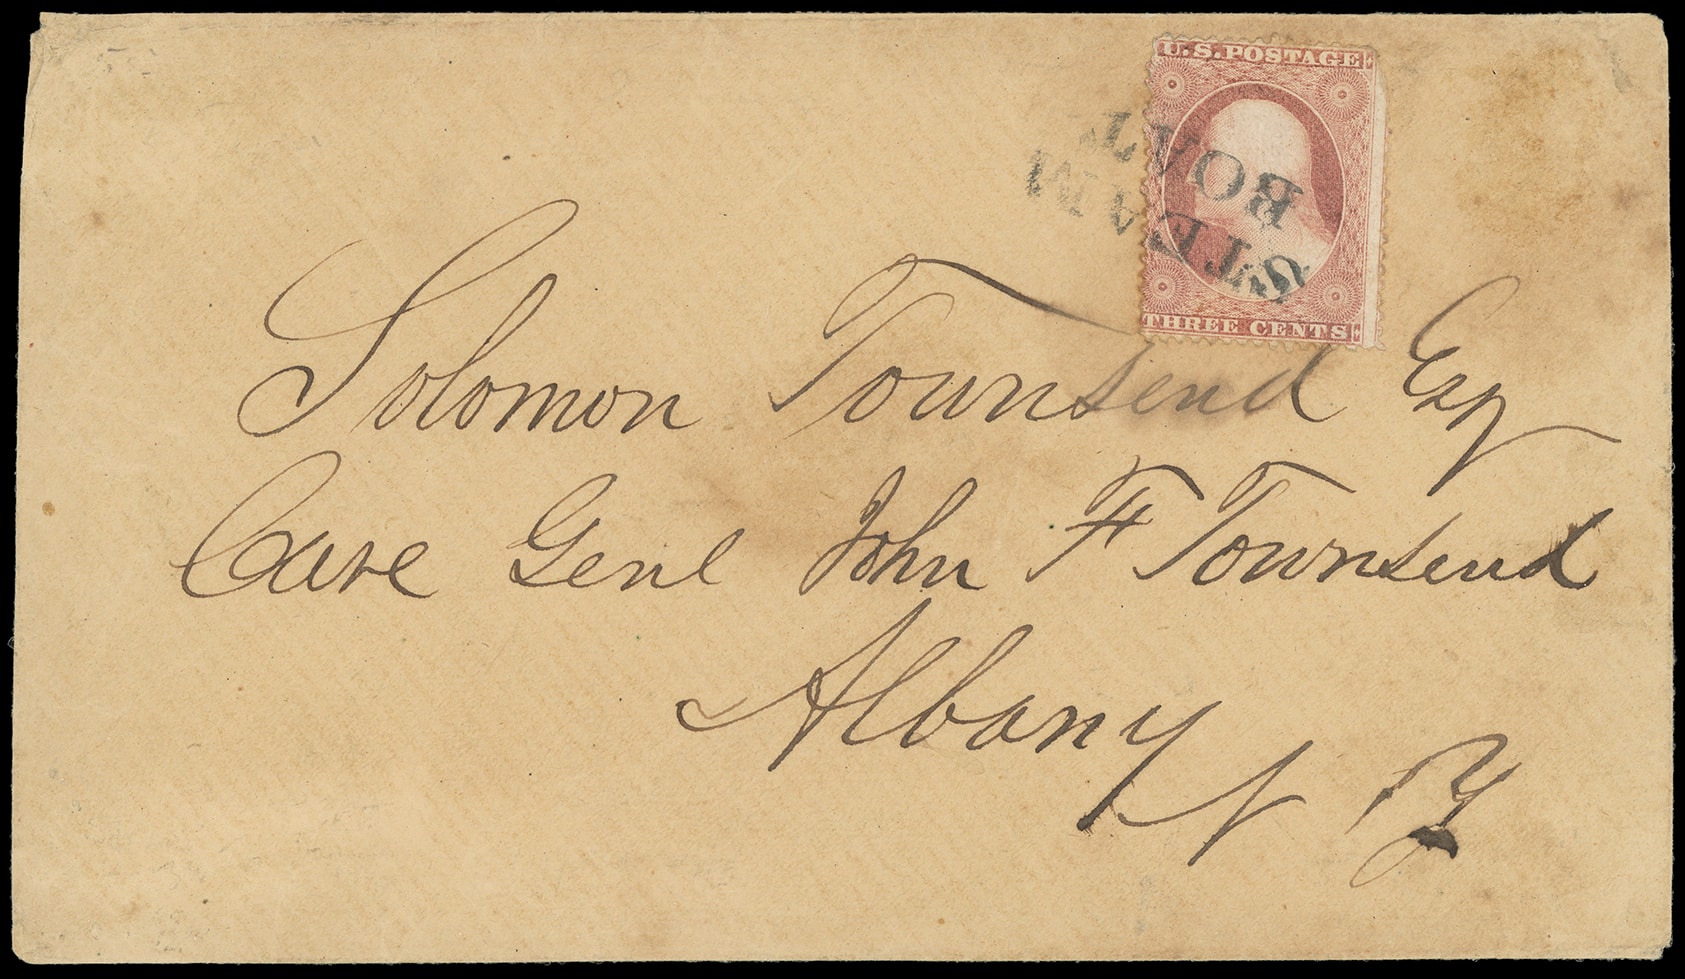 U.S. POSTAGE
STEAM
BOAT
THREE CENTS
Solomon Townsend Esq
Care Genl John F Townsend
Albany
N Y